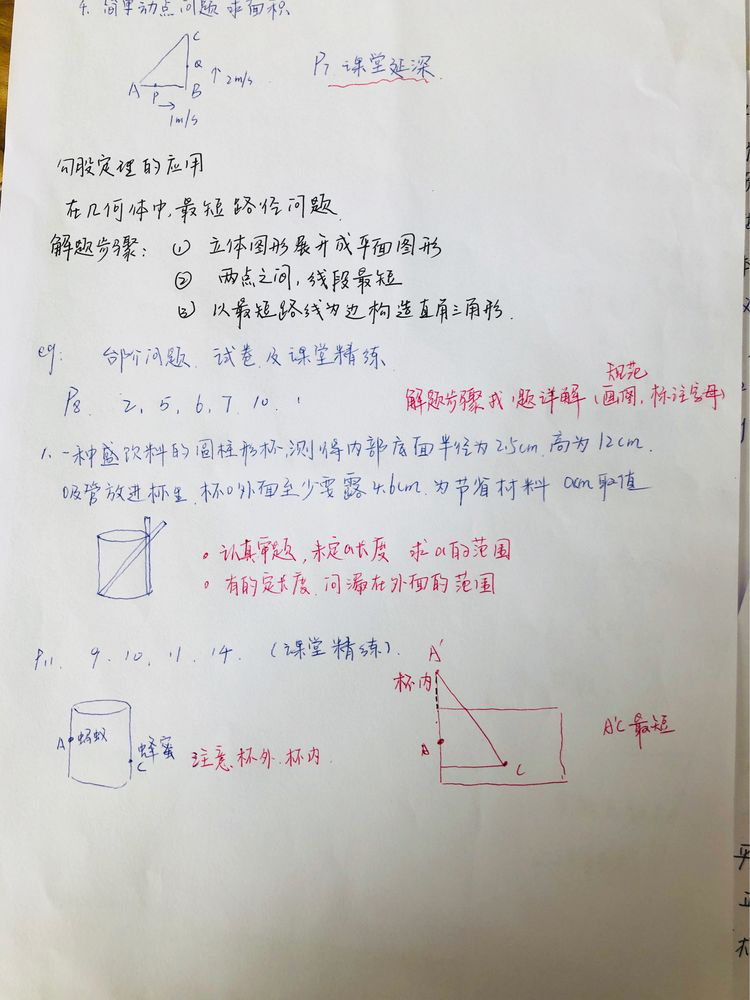 4. 简单动点问题 求面积
C
Q
↑ 2m/s
A P B
→
1m/s
P7 课堂延深
勾股定理的应用
在几何体中,最短路径问题
解题步骤: ① 立体图形展开成平面图形
② 两点之间,线段最短
③ 以最短路线为边构造直角三角形.
eg: 台阶问题. 试卷及课堂精练
P8 2, 5, 6, 7, 10,
规范
解题步骤 题详解 (画图, 标注字母)
1. 一种盛饮料的圆柱形杯,测得内部底面半径为2.5cm, 高为12cm.
吸管放进杯里, 杯口外面至少要露4.6cm. 为节省材料 acm取值
。认真审题, 未定a长度 求a的范围
。有的定长度, 问漏在外面的范围
P11. 9. 10. 11. 14. (课堂精练).
A 蚂蚁
蜂蜜
C
注意杯外. 杯内.
A'
杯内
A
C
A'C最短
平